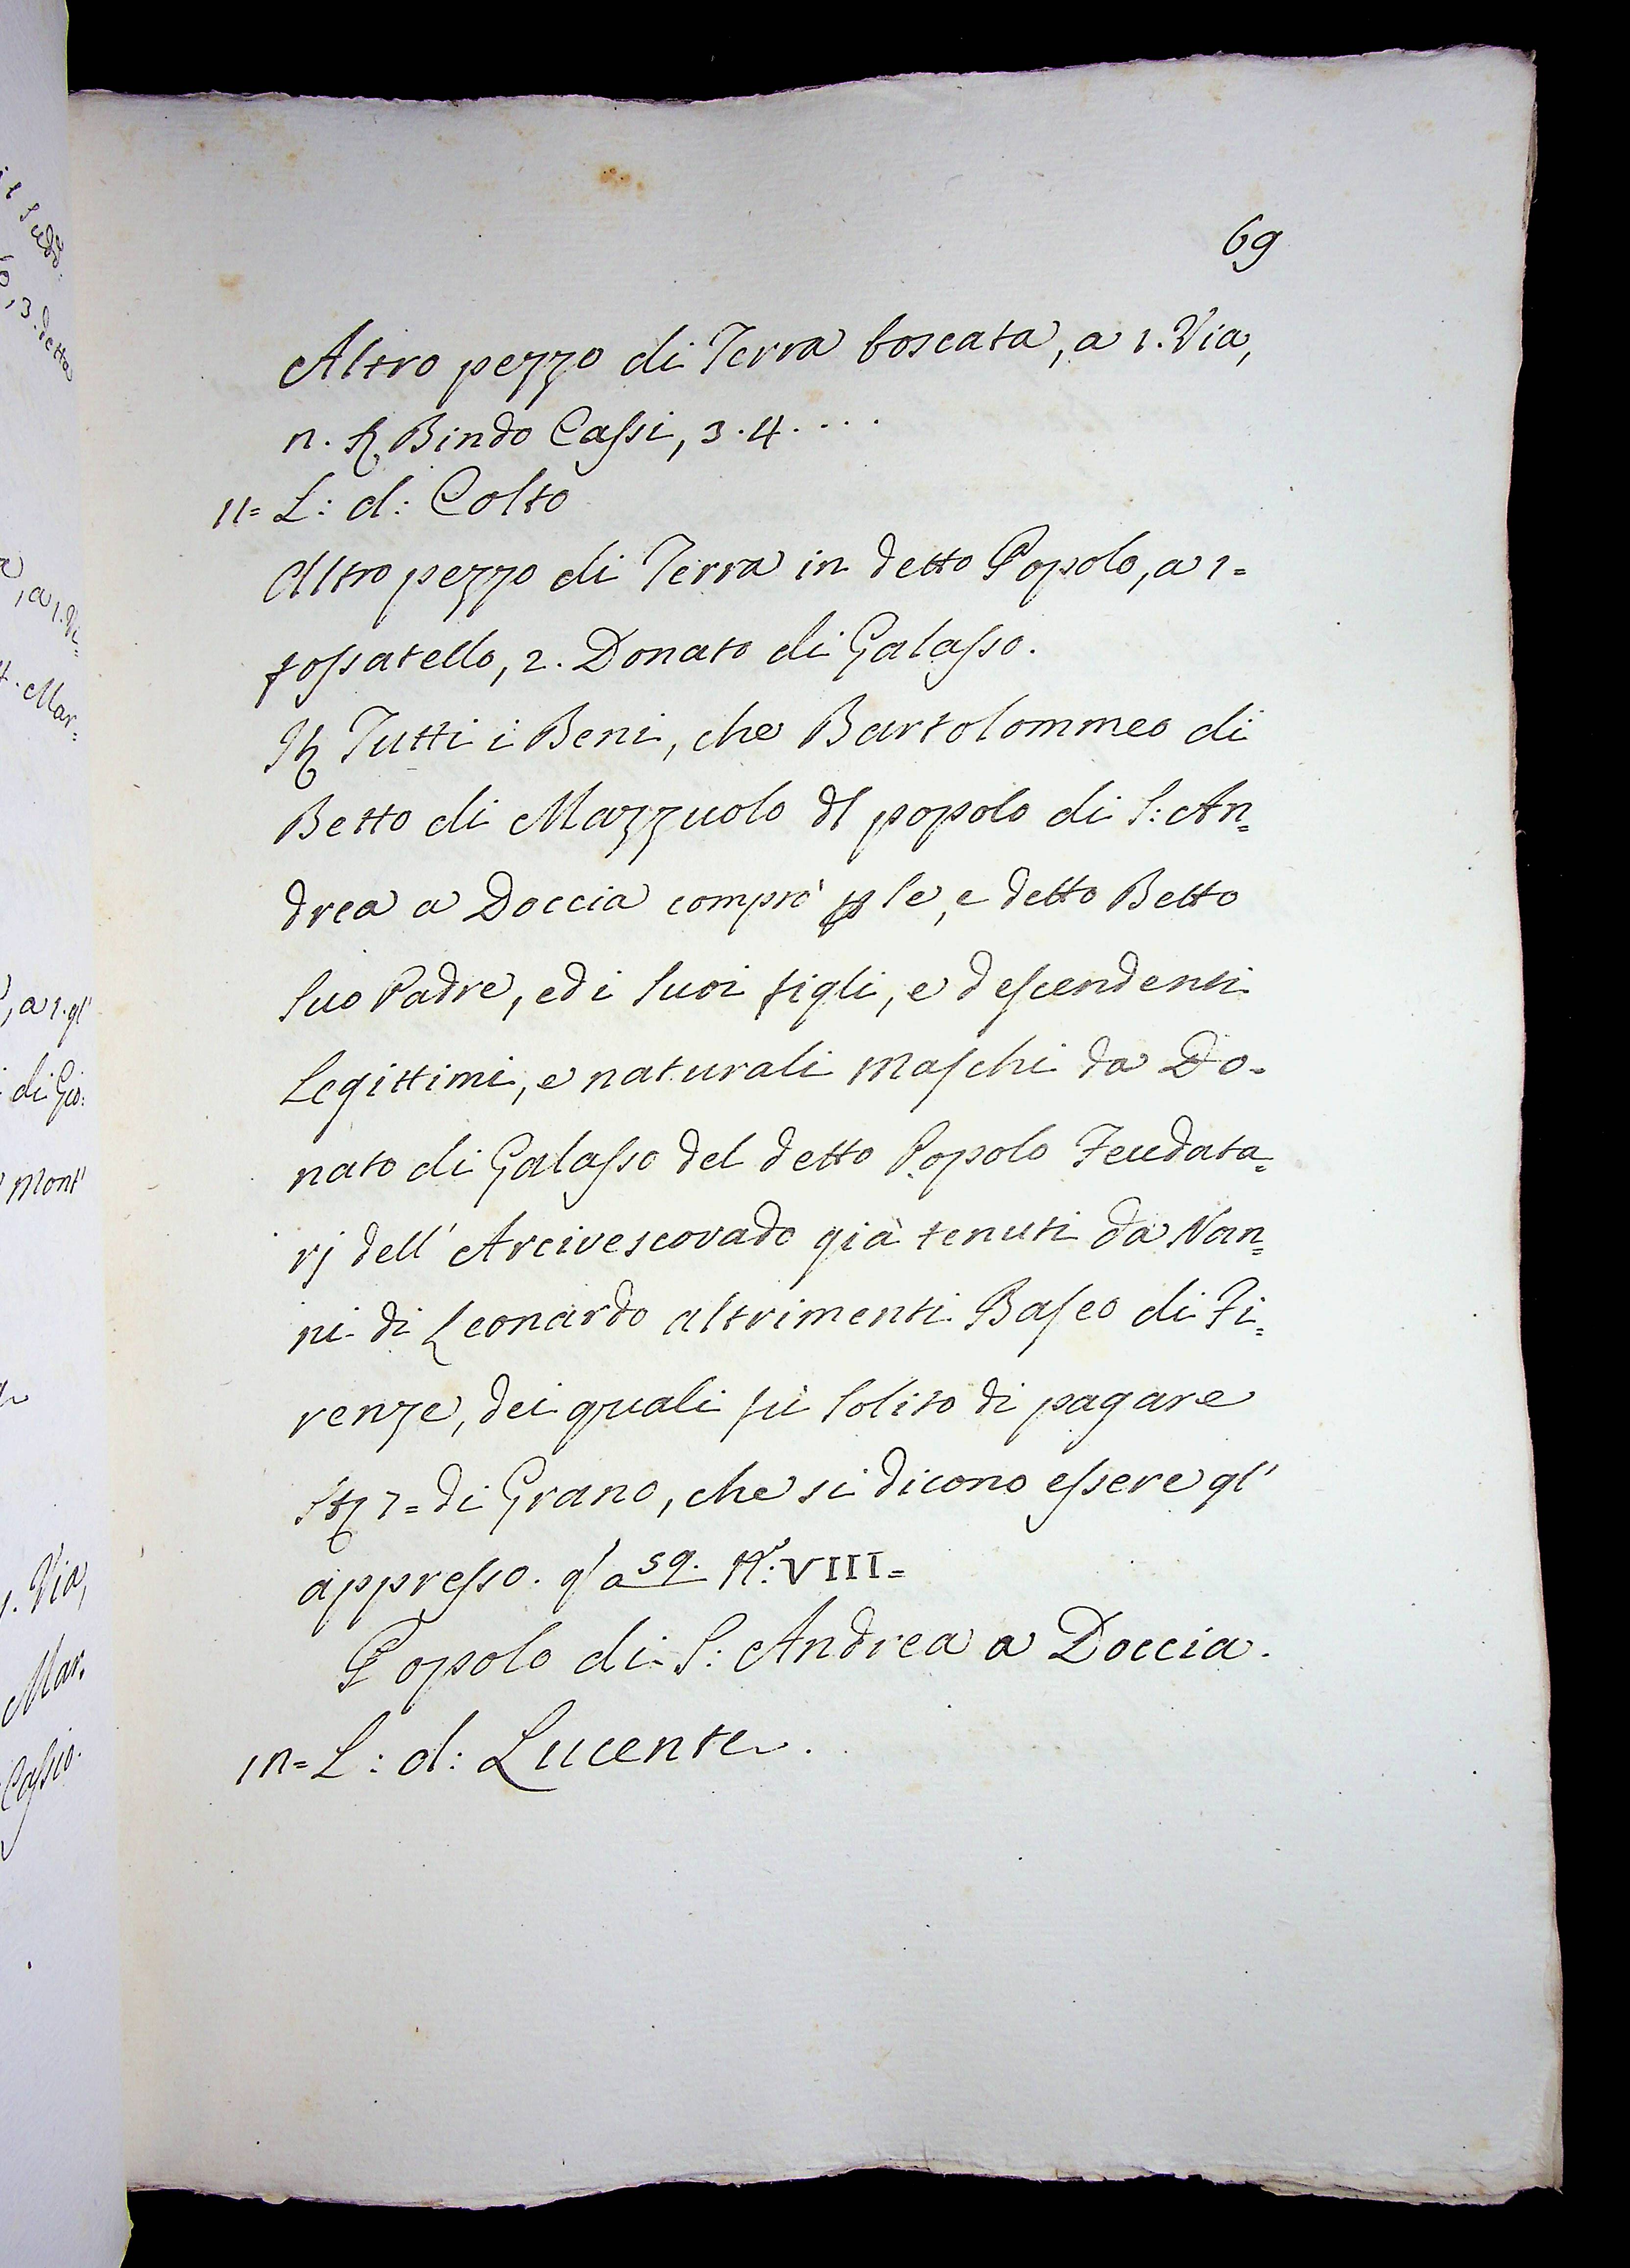 69
Altro pezzo di Terra boscata, a 1. Via,
n. Bindo Cassi, 3. 4. . . .
11= L: d: Colto
Altro pezzo di Terra in detto Popolo, a 1=
fossatello, 2. Donato di Galasso.
Tutti i Beni, che Bartolommeo di
Betto di Mazzuolo dl popolo di S: An=
drea a Doccia comprò p se, e detto Betto
suo Padre, ed i suoi figli, e descendenti
Legittimi, e naturali Maschi da Do=
nato di Galasso del detto Popolo Feudata=
rj dell' Arcivescovado già tenuti da Nan=
ni di Leonardo altrimenti Baseo di Fi=
renze, dei quali fù solito di pagare
di Grano, che si dicono essere ql'
appresso. VIII=
Popolo di S: Andrea a Doccia.
in= L: d: Lucente.